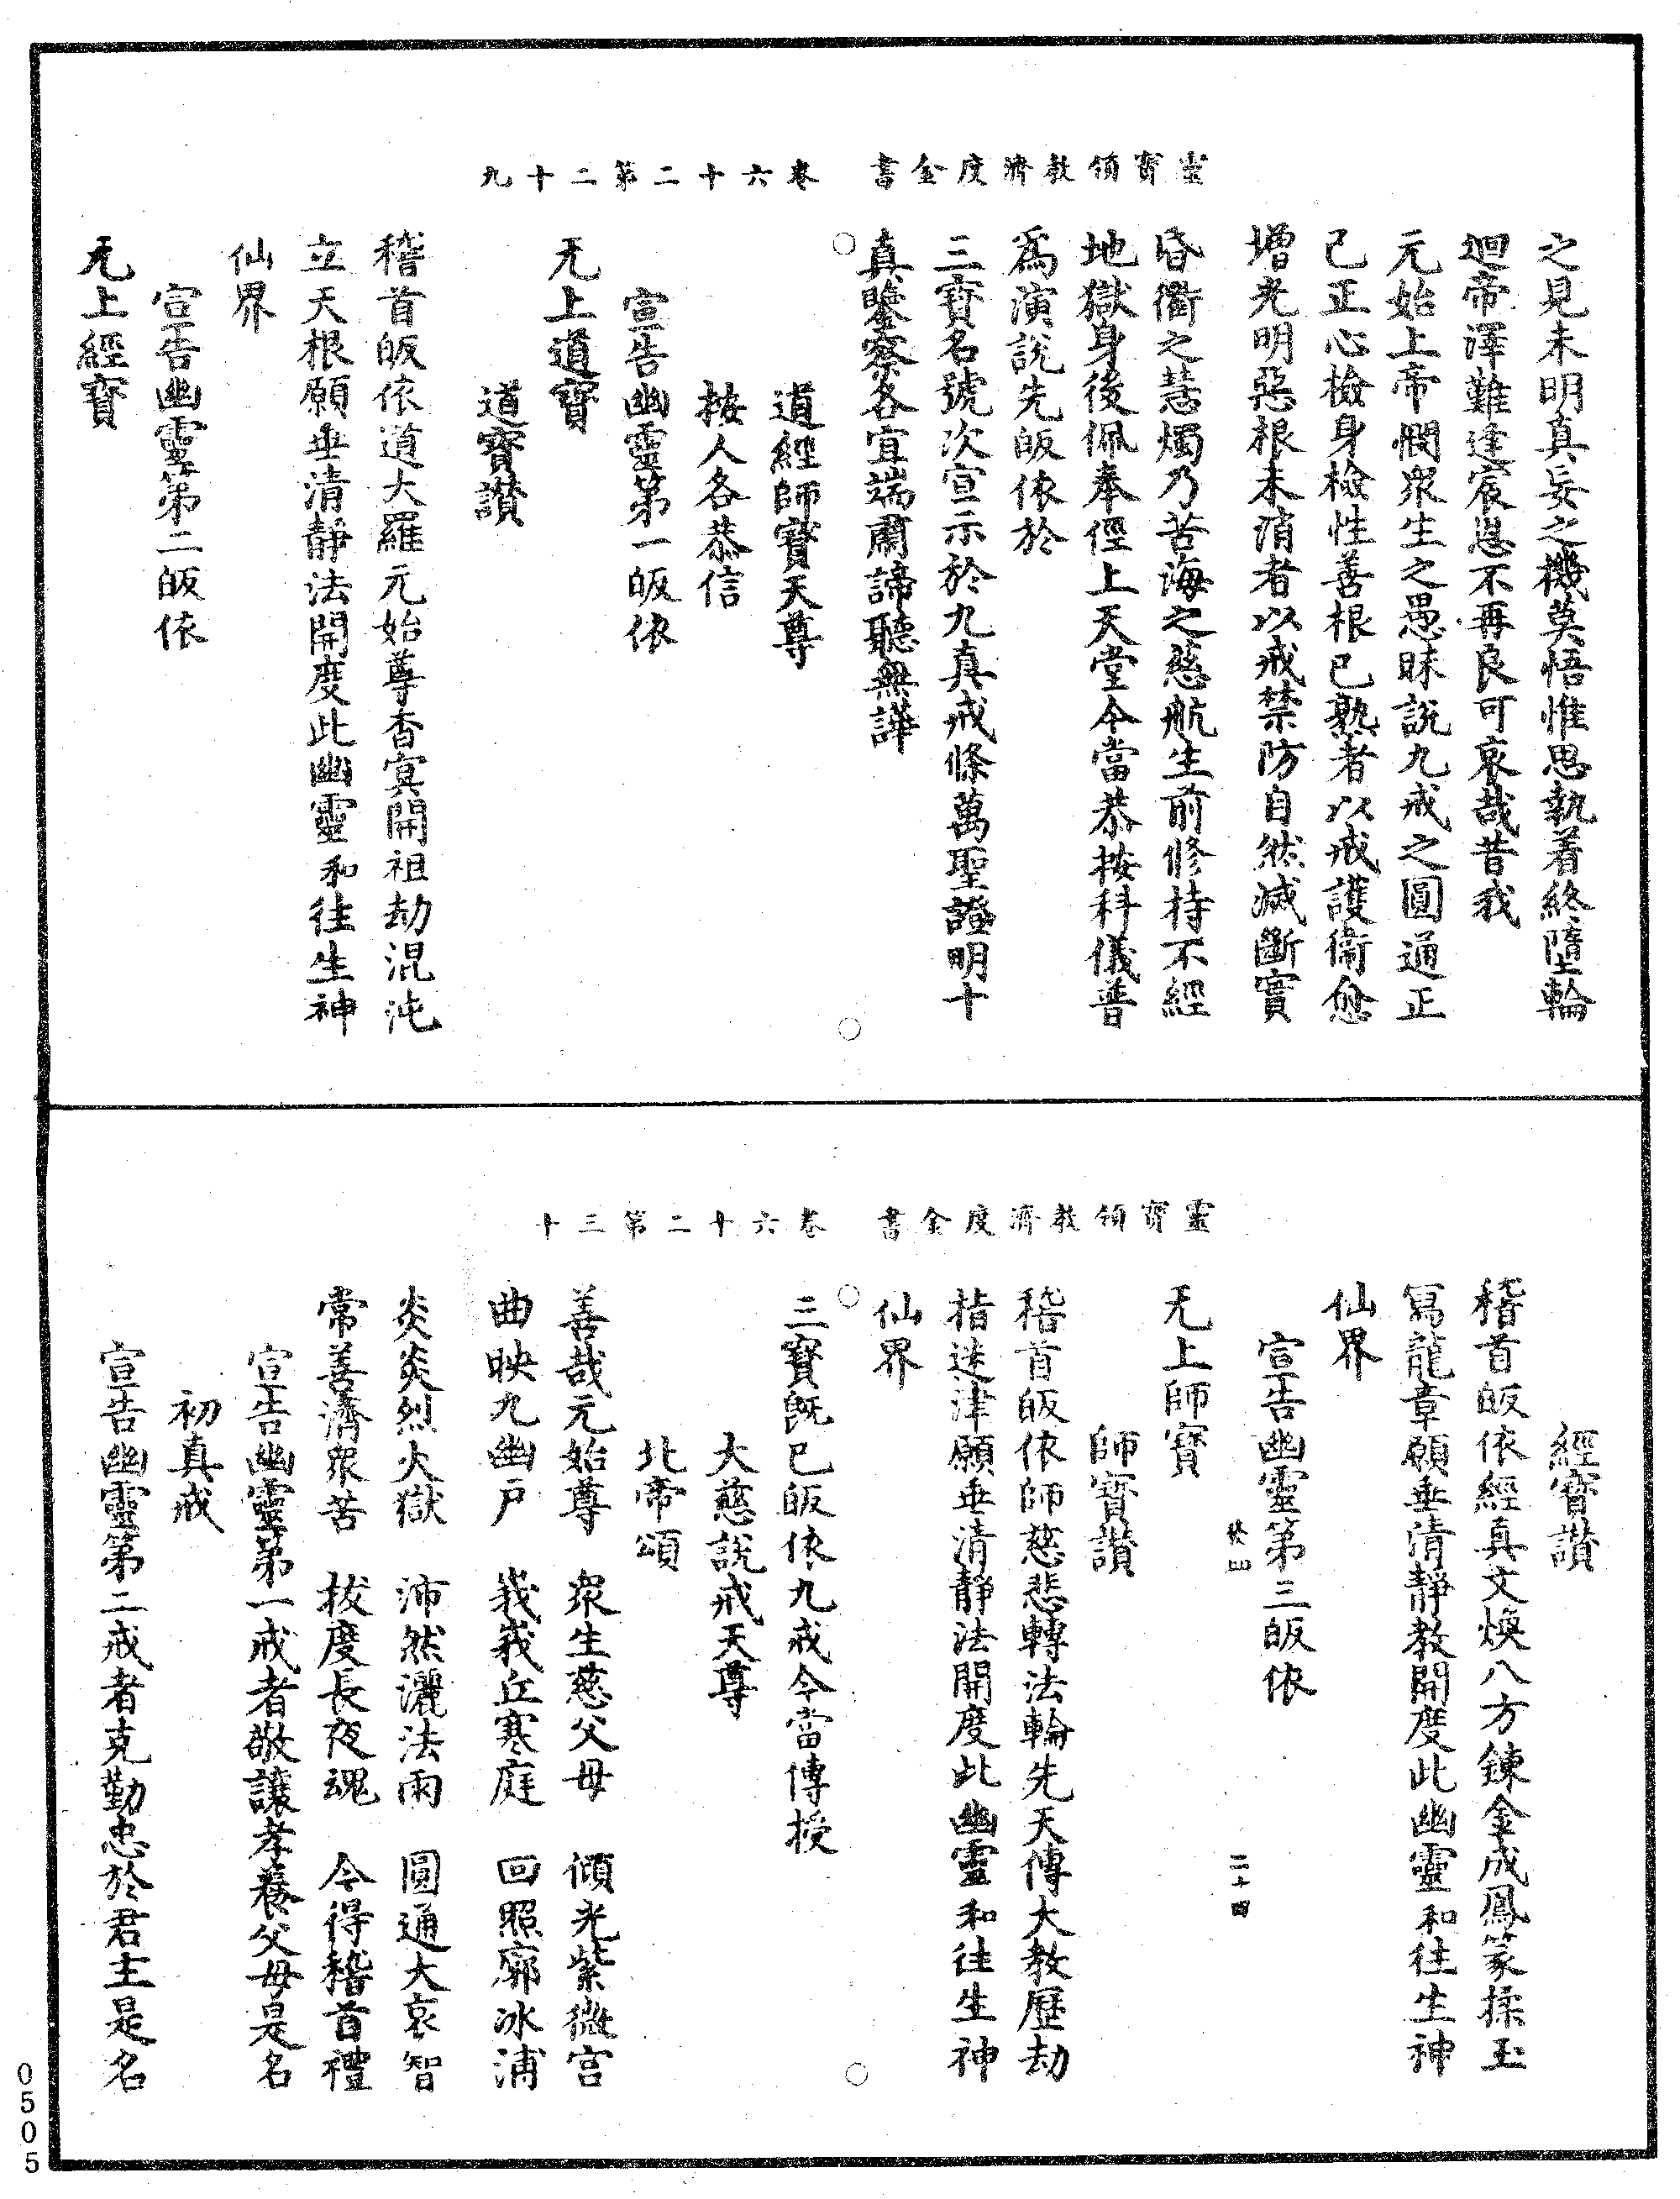 靈寶領教濟度金書　卷六十二第二十九
之見未明真妄之機莫悟惟思執着終墮輪
迴帝澤難逢宸恩不再良可哀哉昔我
元始上帝憫眾生之愚昧說九戒之圓通正
己正心檢身檢性善根已熟者以戒護衛愈
增光明惡根未消者以戒禁防自然滅斷實
昏衢之慧燭乃苦海之慈航生前修持不經
地獄身後佩奉徑上天堂今當恭按科儀普
為演說先皈依於
三寶名號次宣示於九真戒條萬聖證明十
真鑒察各宜端肅諦聽無譁
道經師寶天尊
按人各恭信
宣告幽靈第一皈依
无上道寶
道寶讚
稽首皈依道大羅元始尊杳冥開祖劫混沌
立天根願垂清靜法開度此幽靈和往生神
仙界
宣告幽靈第二皈依
无上經寶
靈寶領教濟度金書　卷六十二第三十
經寶讚
稽首皈依經真文煥八方鍊金成鳳篆揉玉
寫龍章願垂清靜教開度此幽靈和往生神
仙界
宣告幽靈第三皈依
二十四
无上師寶
師寶讚
稽首皈依師慈悲轉法輪先天傳大教歷劫
指迷津願垂清靜法開度此幽靈和往生神
仙界
三寶既已皈依九戒今當傳授
大慈說戒天尊
北帝頌
善哉元始尊　眾生慈父母　傾光紫微宮
曲映九幽戶　峩峩丘寒庭　回照廓冰浦
炎炎烈火獄　沛然灑法雨　圓通大哀智
常善濟眾苦　拔度長夜魂　今得稽首禮
宣告幽靈第一戒者敬讓孝養父母是名
初真戒
宣告幽靈第二戒者克勤忠於君主是名
0505